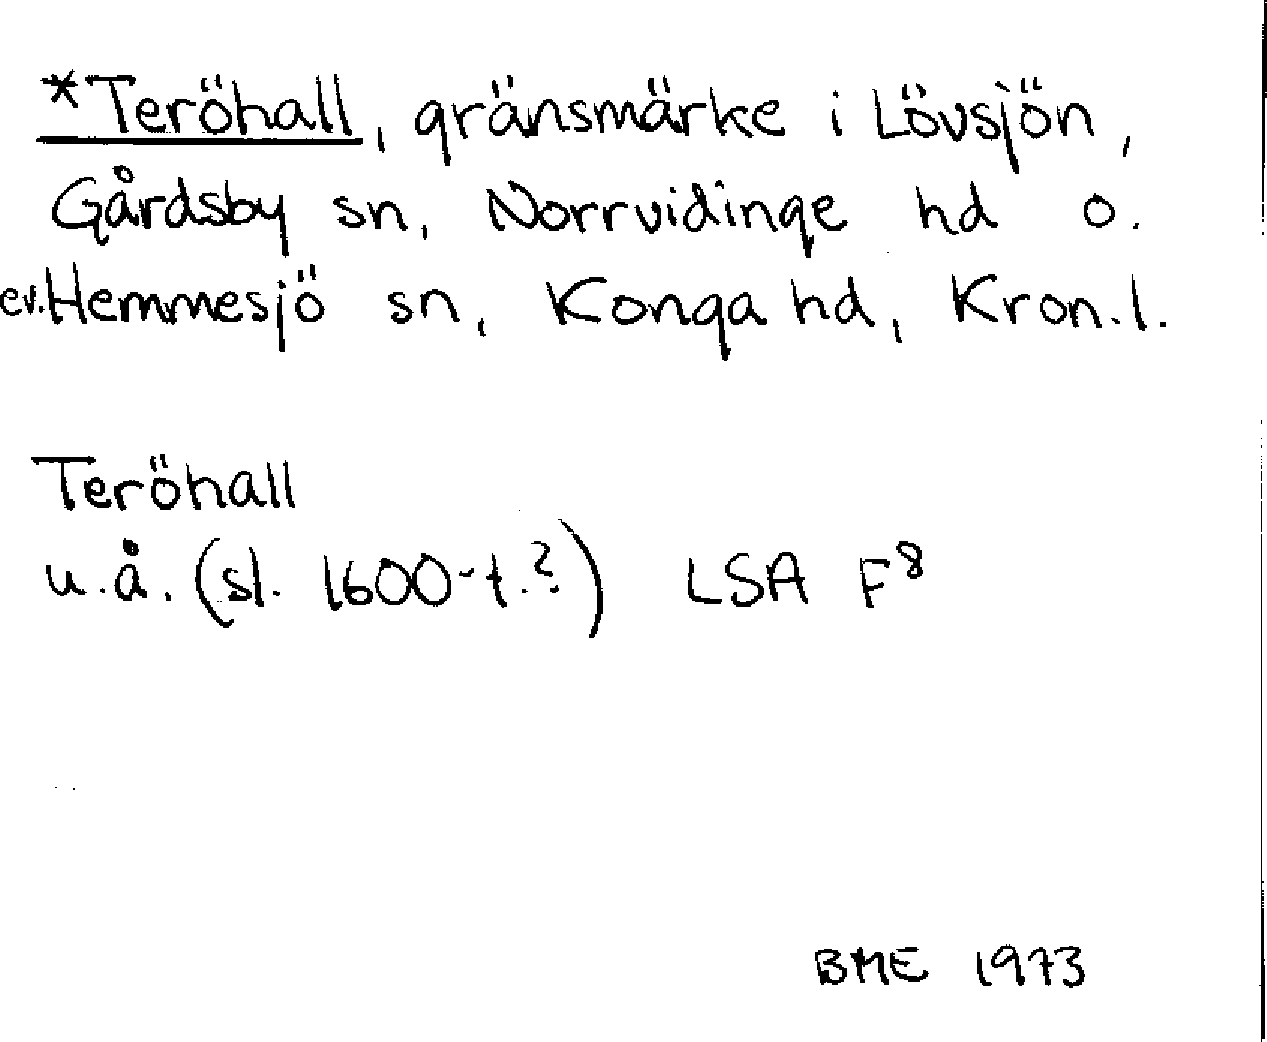 *Teröhall, gränsmärke i Lövsjön,
Gårdsby sn, Norrvidinge hd o.
ev. Hemmesjö sn, Konga hd, Kron.l.
Teröhall
u.å. (sl. 1600-t.?) LSA F8
BME 1973